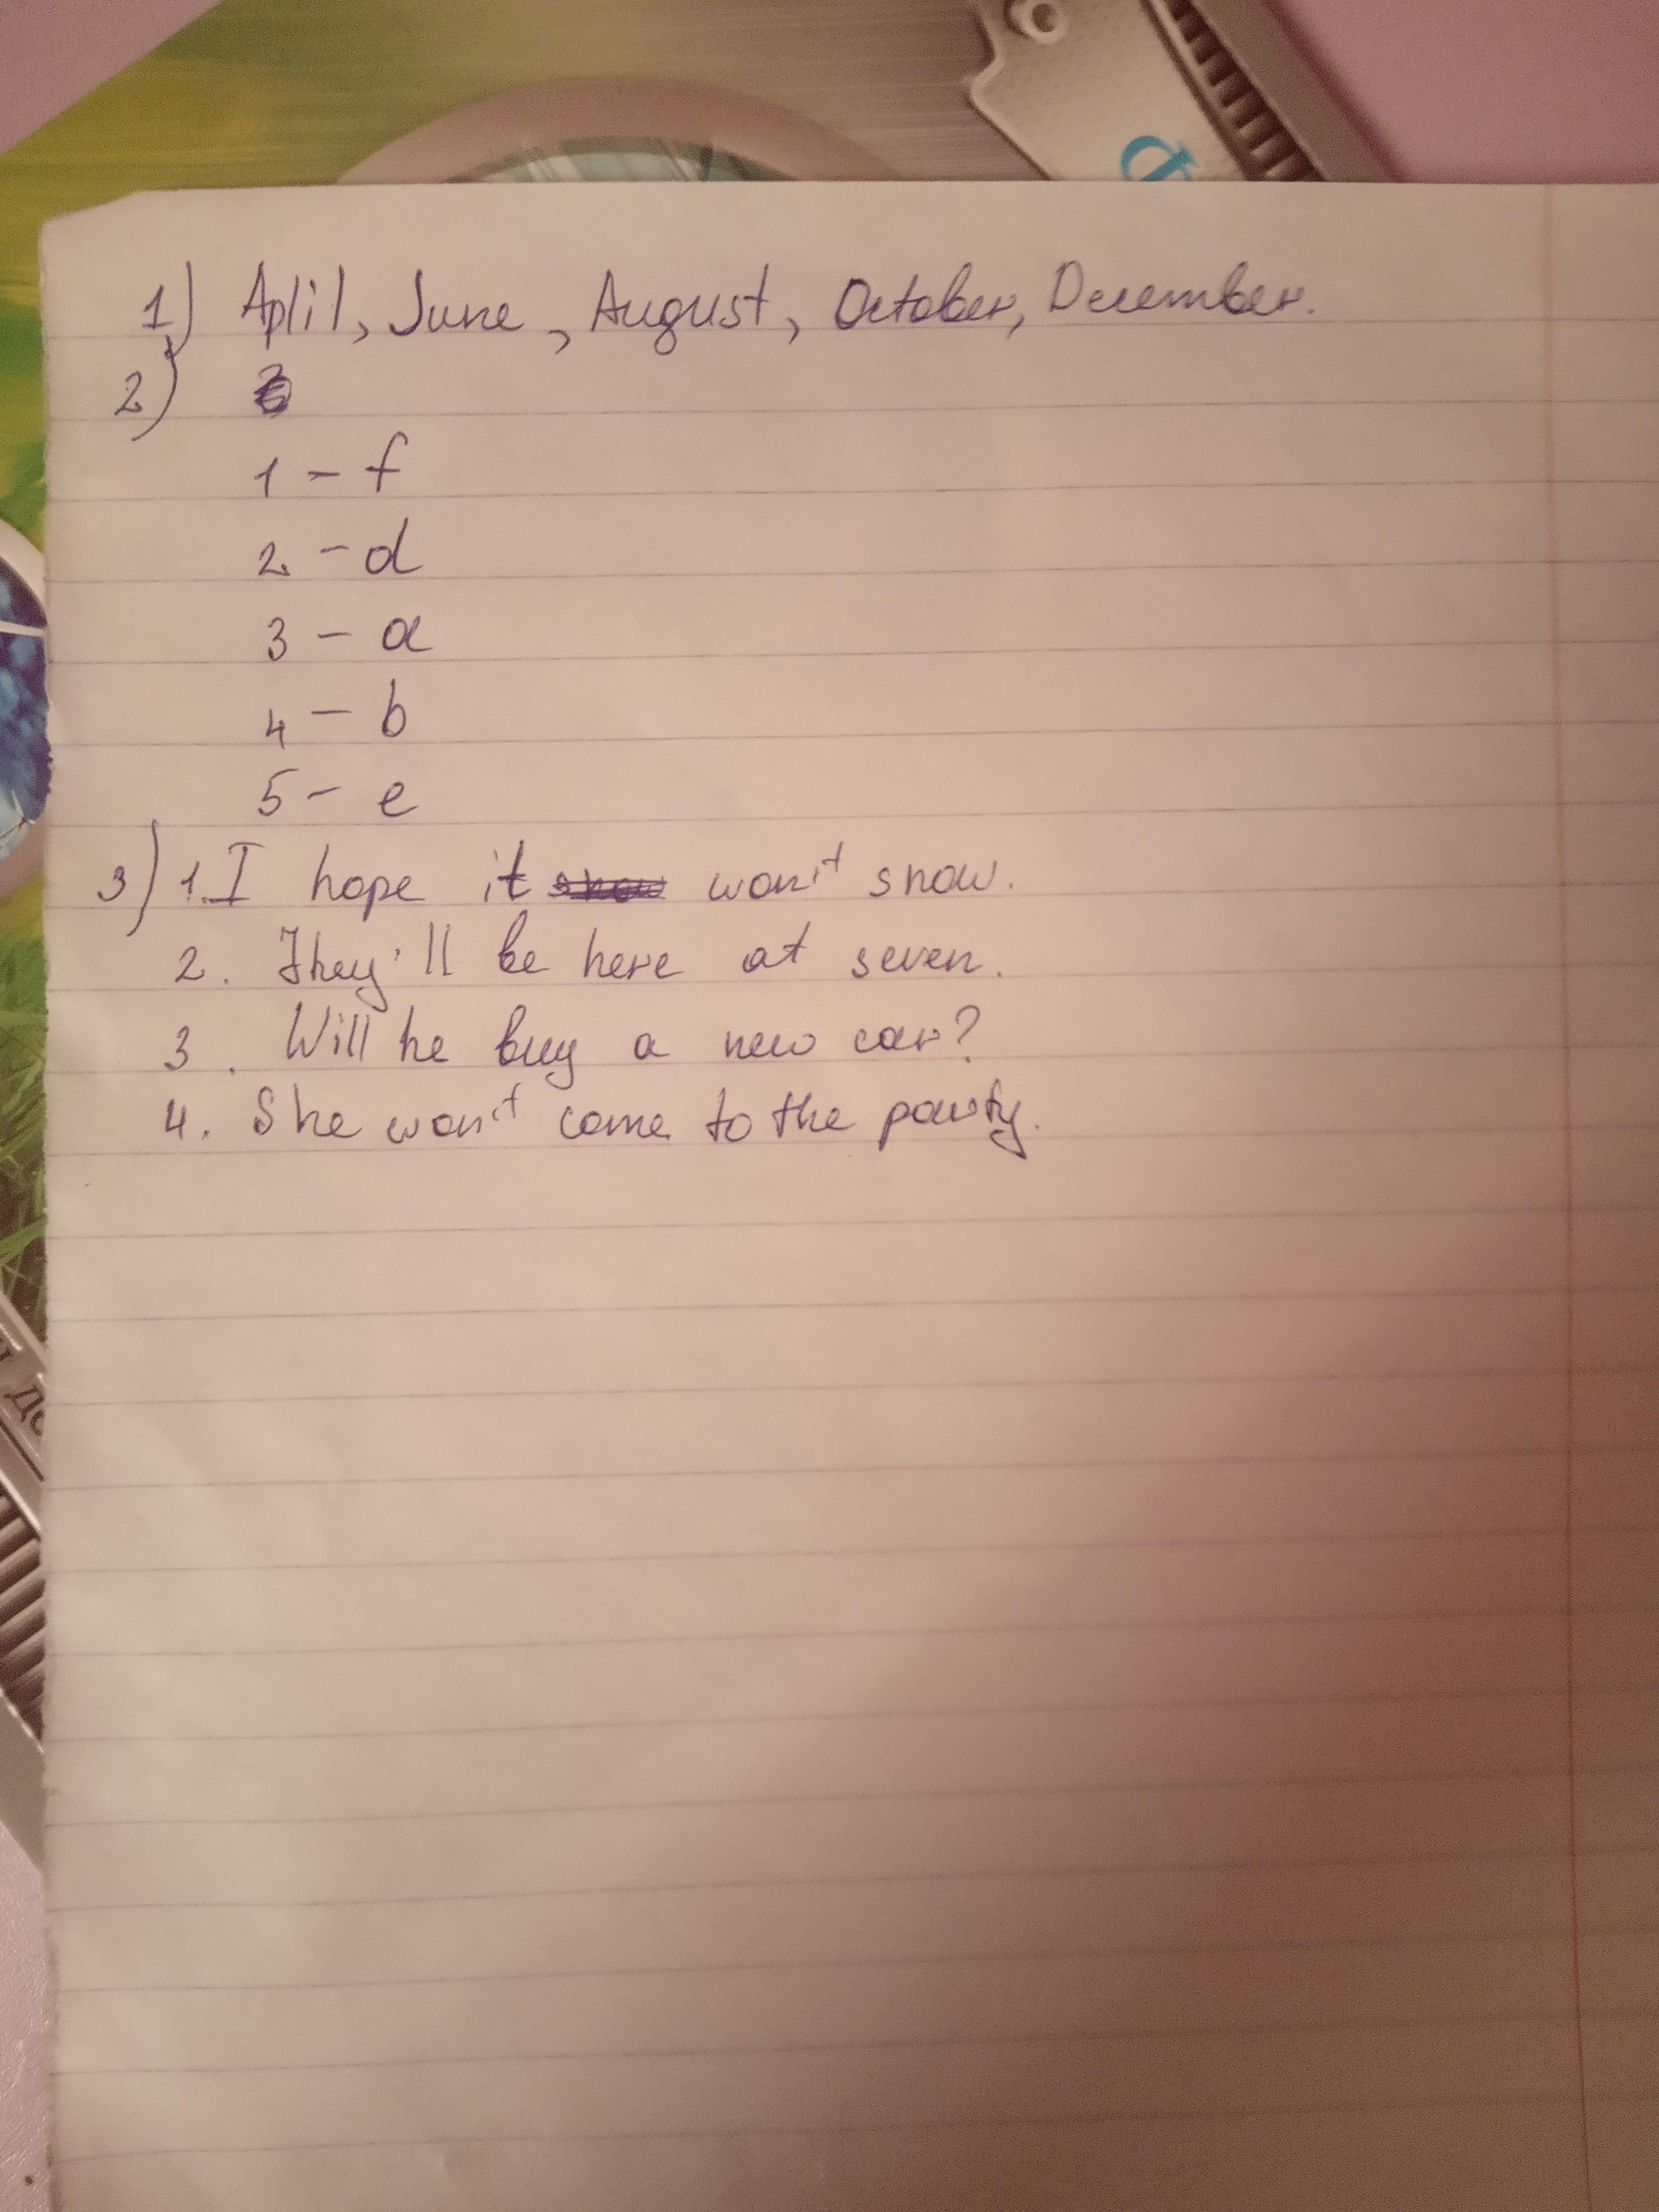 1) Aplil, June, August, October, December.
2)
1 - f
2 - d
3 - a
4 - b
5 - e
3) 1. I hope it won't snow.
2. They'll be here at seven.
3. Will he buy a new car?
4. She won't come to the party.